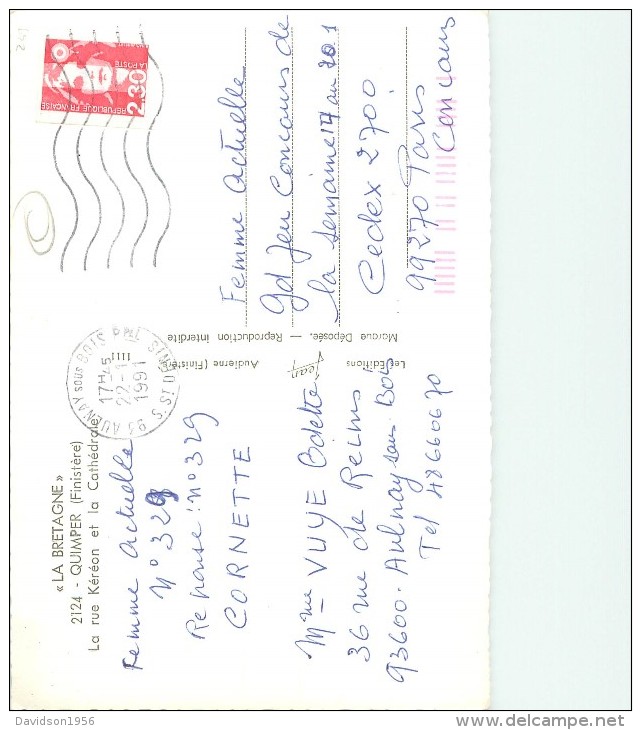 « LA BRETAGNE »
2124 - QUIMPER (Finistère)
La rue Kéréon et la Cathédrale
Femme Actuelle
N° 329
Réponse : n° 329
CORNETTE
Mme VUYE Odette
36 rue de Reims
93600 - Aulnay sous Bois
Tel 48660670
93 AULNAY sous BOIS Ppal
SEINE ST DENIS
17H45
22-1
1991
Les Editions
Jean
Audierne (Finistère)
Marque Déposée. — Reproduction interdite
RÉPUBLIQUE FRANÇAISE
2,30
LA POSTE
Femme Actuelle
gd Jeu Concours de
la semaine 14 au 201
Cedex 2700
99270 Paris
Concours
Davidson1956
www.delcampe.net